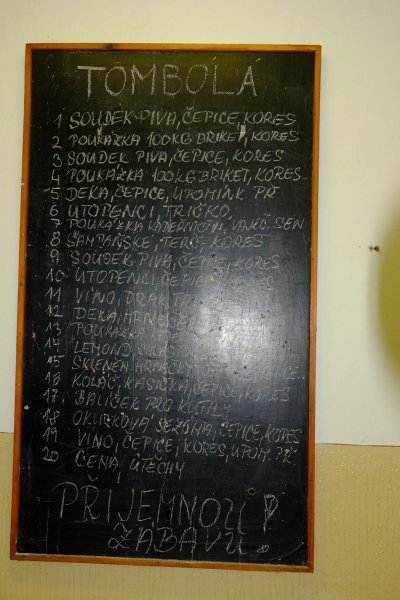 TOMBOLA
1 SOUDEK PIVA, ČEPICE, KORES
2 POUKÁZKA 100KG BRIKET, KORES
3 SOUDEK PIVA, ČEPICE, KORES
4 POUKÁZKA 100KG BRIKET, KORES
5 DEKA, ČEPICE, UPOMÍNK. PŘ.
6 UTOPENCI, TRIČKO,
7 POUKÁZKA KADEŘNICTVÍ, VAJEČ. SEN
8 ŠAMPAŇSKÉ, TERČ, KORES
9 SOUDEK PIVA, ČEPICE, KORES
10 UTOPENCI, ČEPICE,
11 VÍNO,
12 DEKA, HRNEK
13 POUKÁZKA
14
15 SKLENĚN.
16 KOLÁČ, KASIČKA, ČEPICE, KORES
17 BALÍČEK PRO KUTILY
18 OKURKOVÁ SEZÓNA, ČEPICE, KORES
19 VÍNO, ČEPICE, KORES, UPOM. PŘ.
20 CENA ÚTĚCHY
PŘÍJEMNOU
ZÁBAVU!